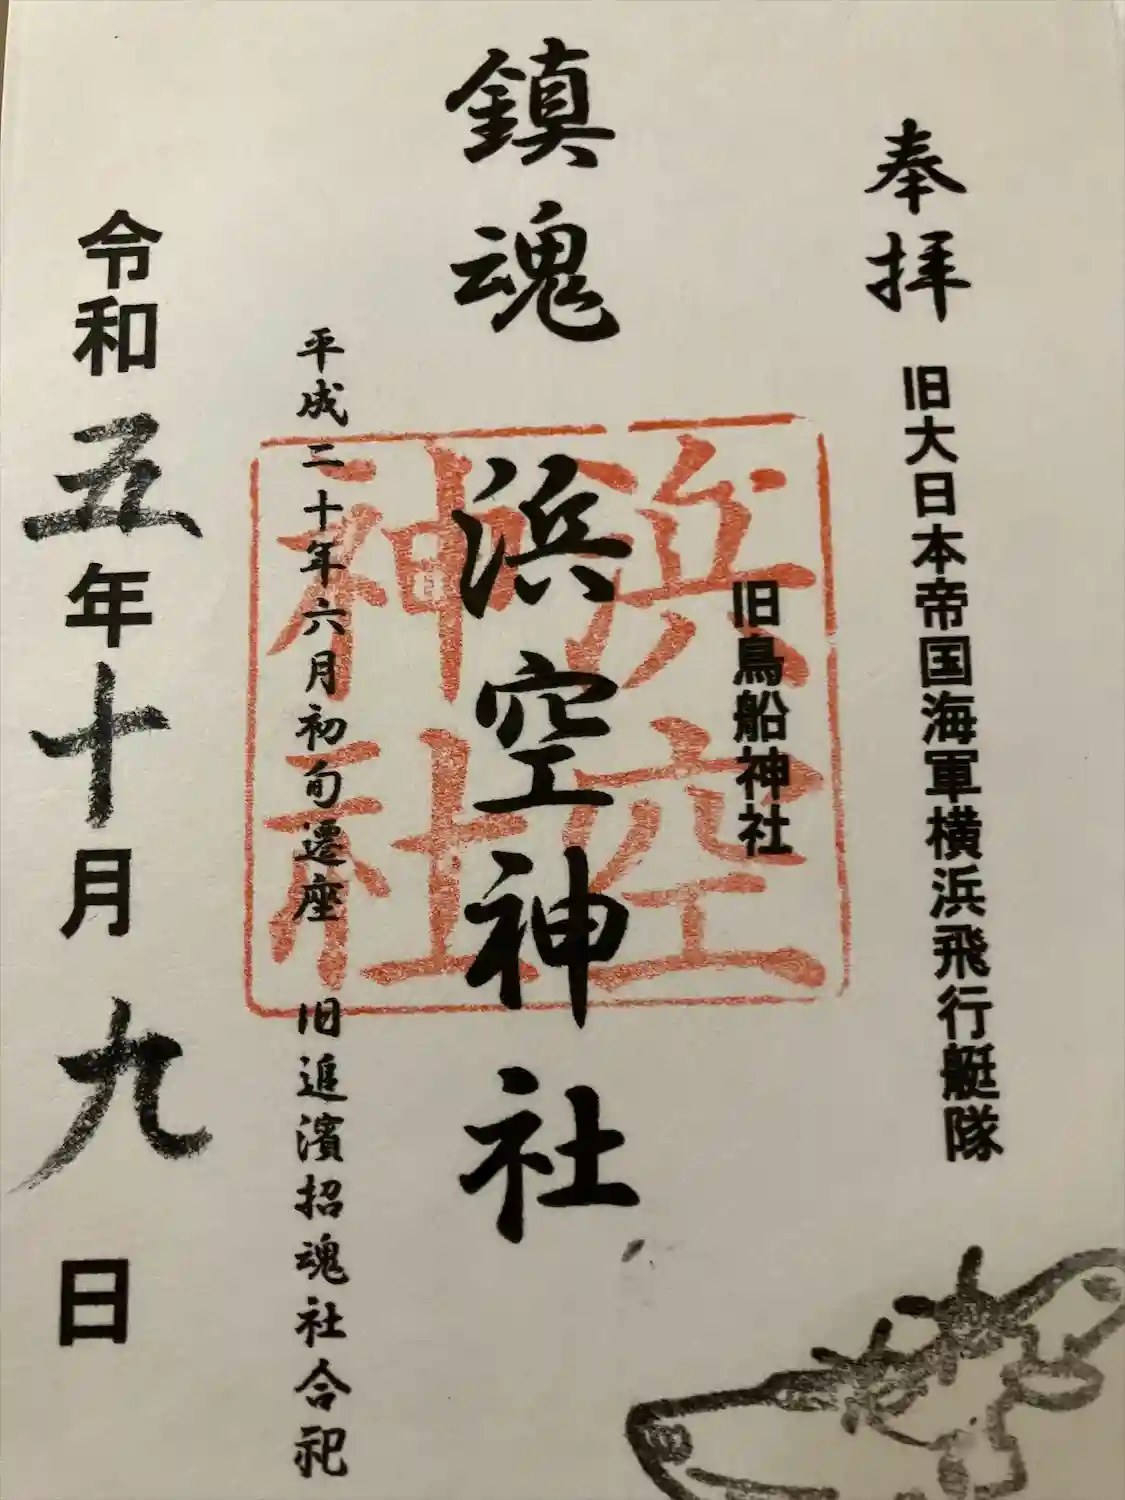 奉拝 旧大日本帝国海軍横浜飛行艇隊
旧鳥船神社
鎮魂 浜空神社
浜空
神社
平成二十年六月初旬遷座 旧追濱招魂社合祀
令和五年十月九日